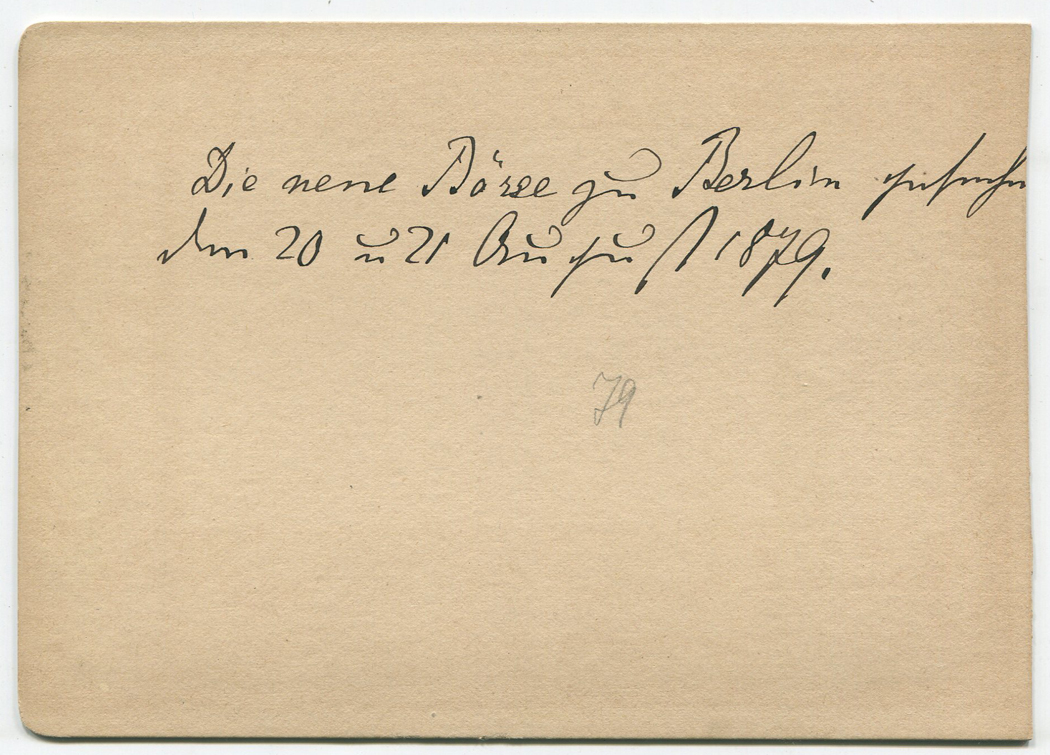 Die neue Börse zu Berlin gesehn
den 20 u 21 August 1879.
79